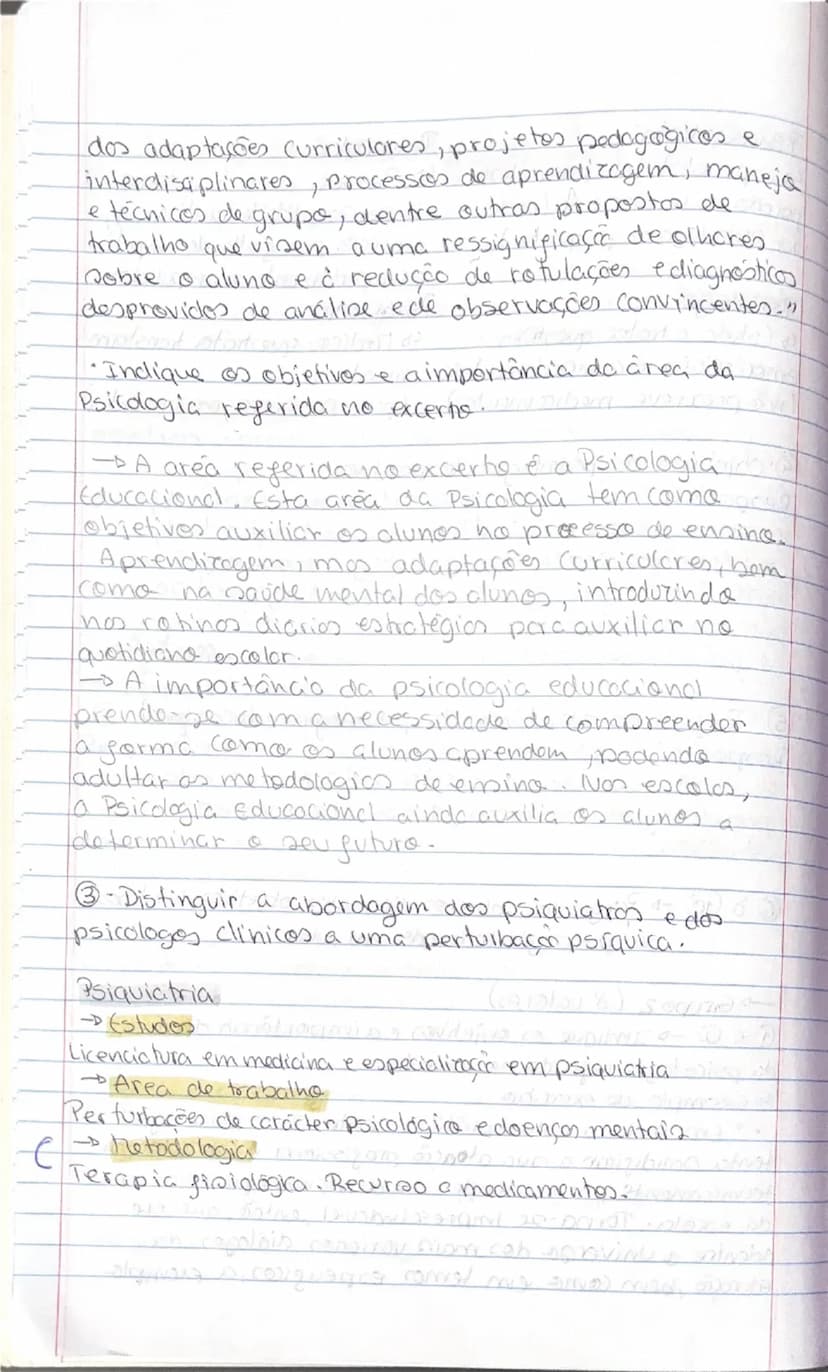 dos adaptações curriculares, projetos pedagógicos e
interdisciplinares, processos de aprendizagem, manejo
e técnicas de grupo, dentre outras propostas de
trabalho que visem a uma ressignificação de olhares
sobre o aluno e à redução de rotulações e diagnósticos
desprovidos de análise e de observações convincentes."
· Indique os objetivos e a importância da área da
Psicologia referida no excerto.
→ A área referida no excerto é a Psicologia
Educacional. Esta área da Psicologia tem como
objetivos auxiliar os alunos no processo de ensino.
Aprendizagem, mas adaptações curriculares, bem
como na saúde mental dos alunos, introduzindo
nas rotinas diárias estratégias para auxiliar no
quotidiano escolar.
→ A importância da psicologia educacional
prende-se com a necessidade de compreender
a forma como os alunos aprendem, podendo
adultar as metodologias de ensino. Nas escolas,
a Psicologia Educacional ainda auxilia os alunos a
determinar o seu futuro.
③ - Distinguir a abordagem dos psiquiatras e dos
psicologos clínicos a uma perturbação psíquica.
Psiquiatria
→ Estudos
Licenciatura em medicina e especialização em psiquiatria
→ Area de trabalho
Perturbações de carácter psicológico e doenças mentais
→ Metodologia
Terapia fisiológica. Recurso a medicamentos.